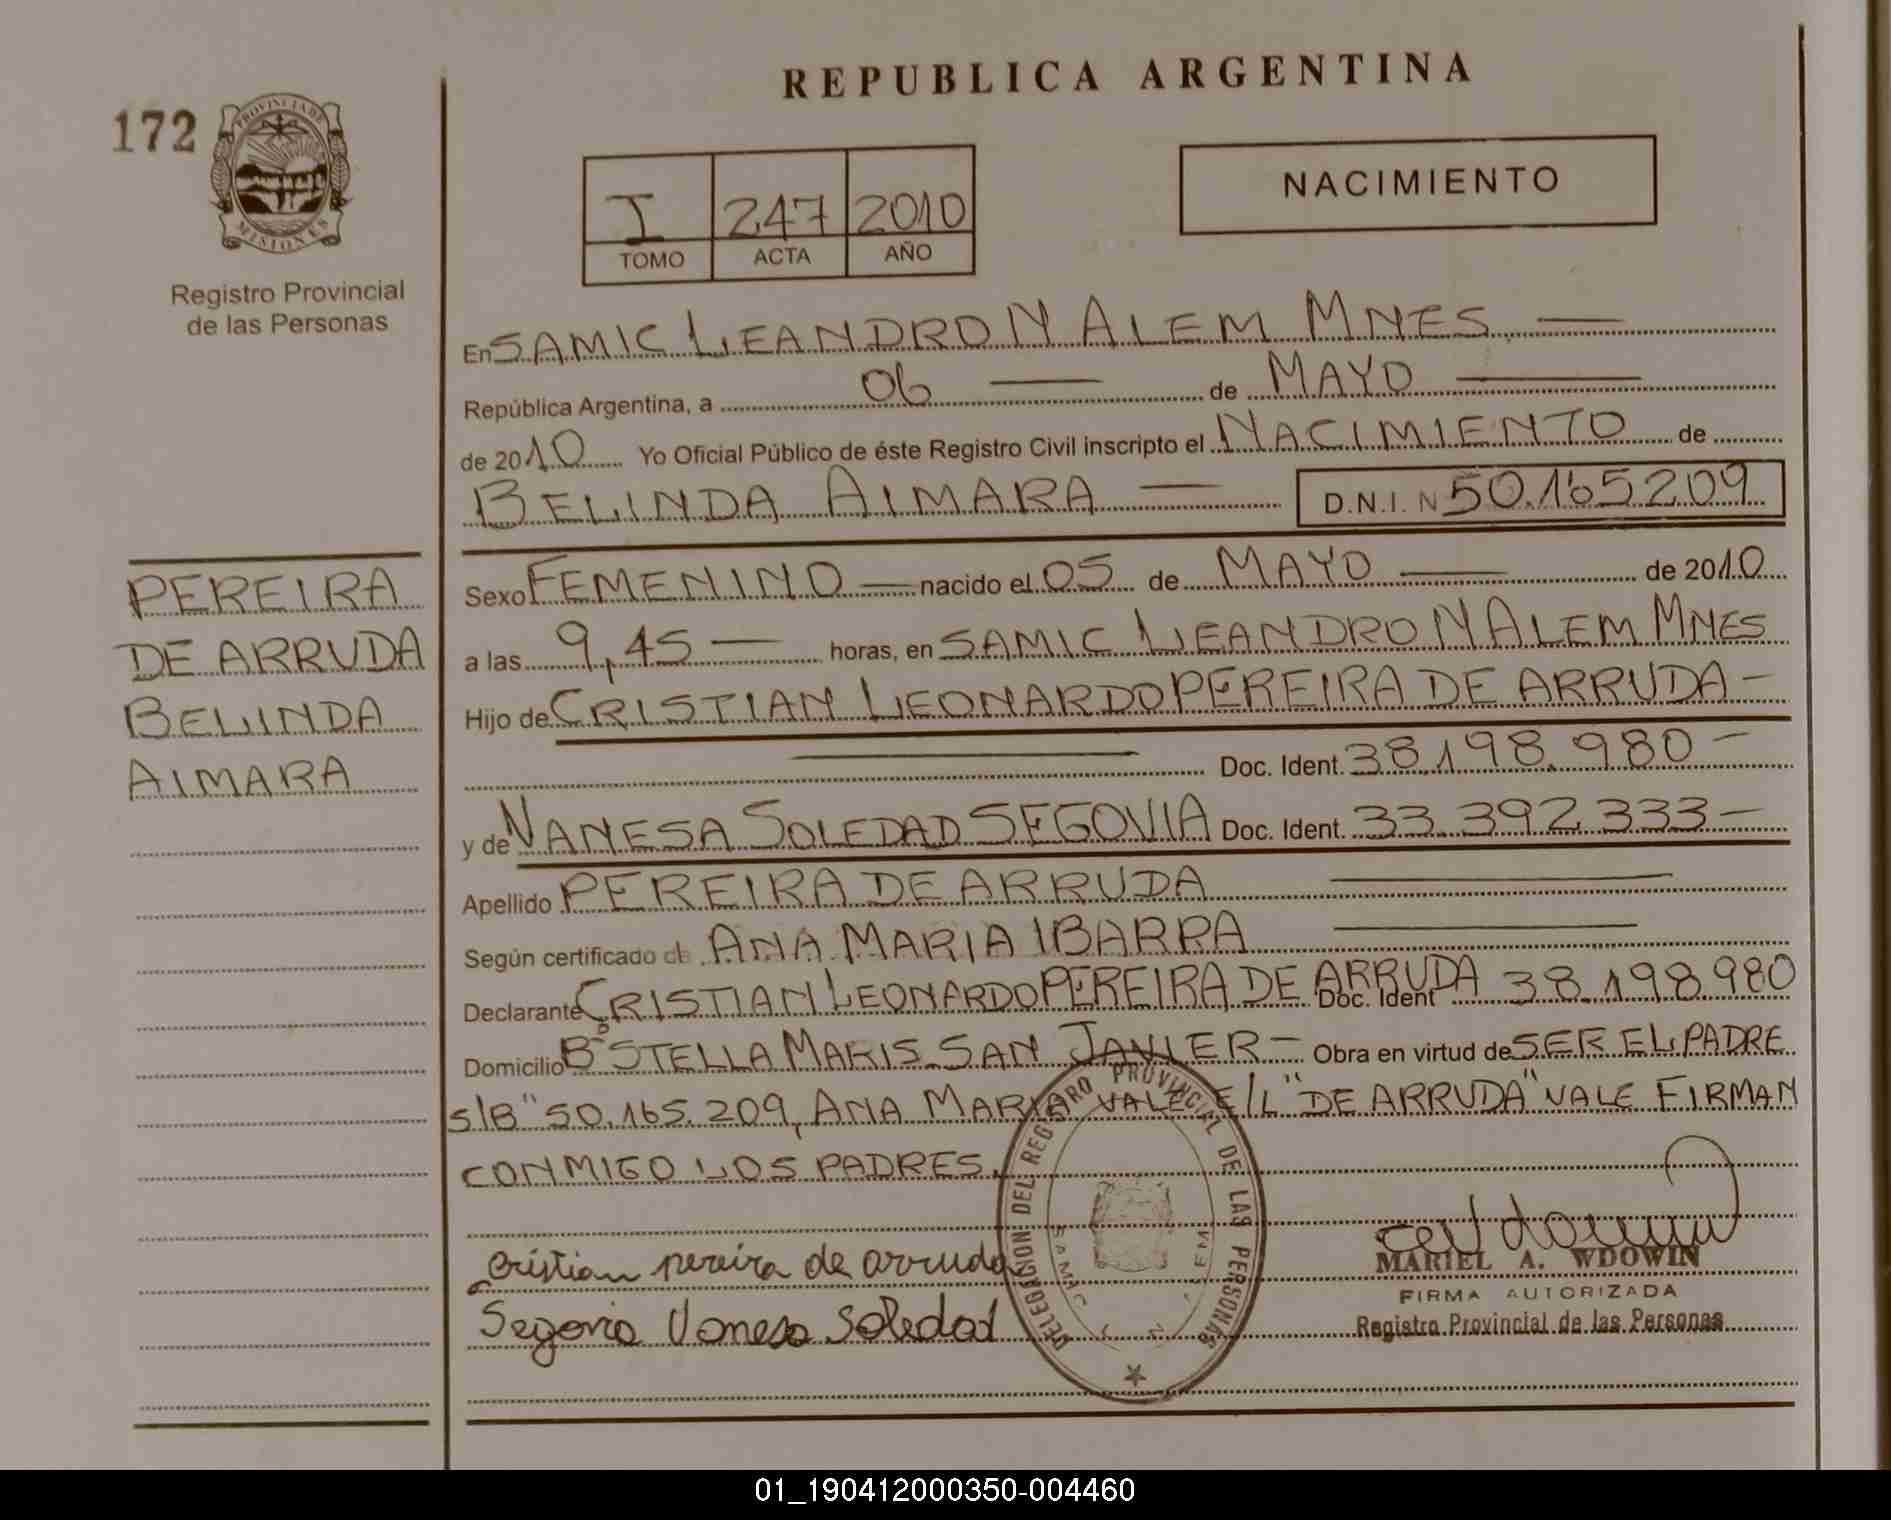 REPUBLICA ARGENTINA
172
PROVINCIA DE
MISIONES
Registro Provincial
de las Personas
NACIMIENTO
I 247 2010
TOMO ACTA AÑO
En SAMIC LEANDRO N ALEM MNES —
República Argentina, a 06 — de MAYO —
de 2010 Yo Oficial Público de éste Registro Civil inscripto el NACIMIENTO de
BELINDA AIMARA — D.N.I. N 50.165209
PEREIRA
DE ARRUDA
BELINDA
AIMARA
Sexo FEMENINO — nacido el 05 de MAYO — de 2010
a las 9,45 — horas, en SAMIC LEANDRO N ALEM MNES
Hijo de CRISTIAN LEONARDO PEREIRA DE ARRUDA –
— Doc. Ident. 38.198.980 –
y de VANESA SOLEDAD SEGOVIA Doc. Ident. 33.392.333 –
Apellido PEREIRA DE ARRUDA —
Según certificado de ANA MARIA IBARRA —
Declarante CRISTIAN LEONARDO PEREIRA DE ARRUDA Doc. Ident 38.198.980
Domicilio Bº STELLA MARIS SAN JAVIER – Obra en virtud de SER EL PADRE
S/B "50.165.209, ANA MARIA VALE E/L "DE ARRUDA" VALE FIRMAN
CONMIGO LOS PADRES.
DELEGACION DEL REGISTRO PROVINCIAL DE LAS PERSONAS
SAMIC L. N. ALEM
cristian pereira de arruda
Segovia Vanesa Soledad
MARIEL A. WDOWIN
FIRMA AUTORIZADA
Registro Provincial de las Personas
01_190412000350-004460